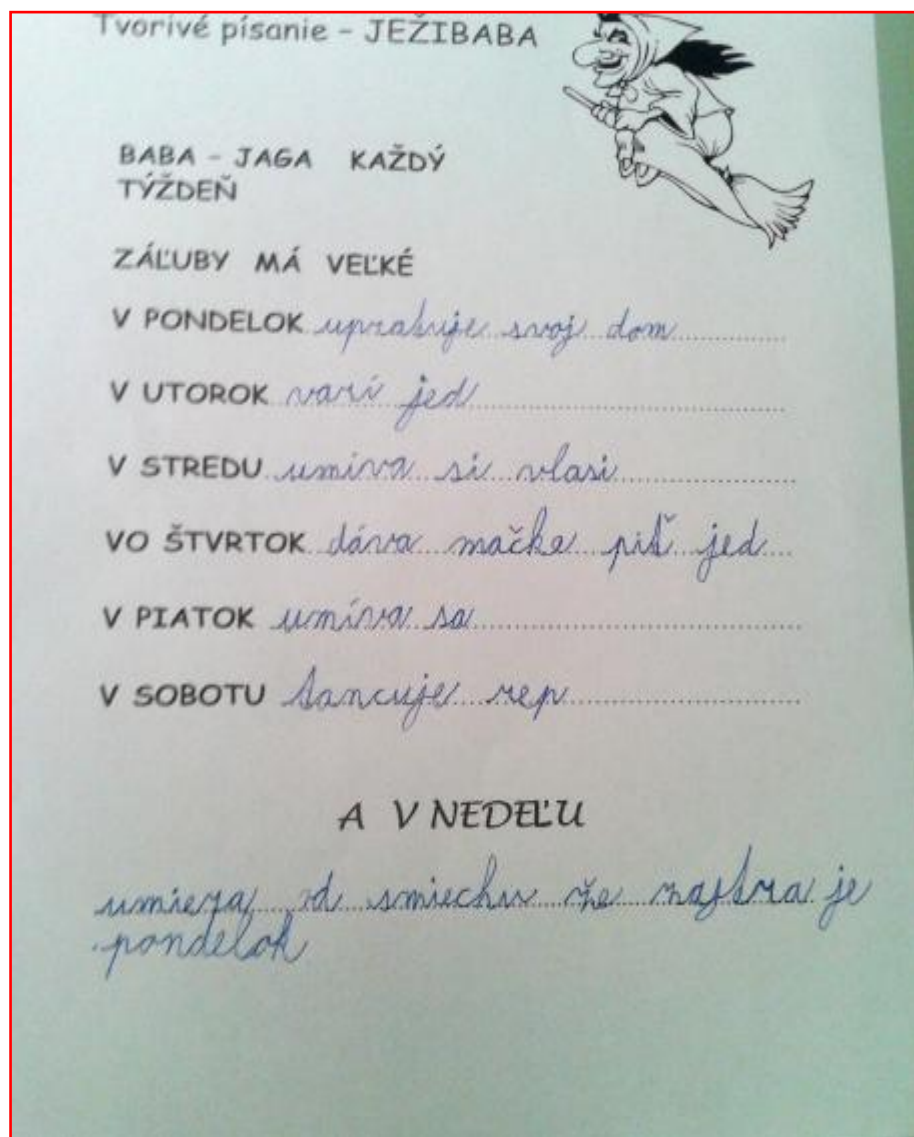 Tvorivé písanie - JEŽIBABA
BABA - JAGA KAŽDÝ
TÝŽDEŇ
ZÁĽUBY MÁ VEĽKÉ
V PONDELOK upratuje svoj dom
V UTOROK varí jed
V STREDU umíva si vlasi
VO ŠTVRTOK dáva mačke piť jed
V PIATOK umíva sa
V SOBOTU tancuje rep
A V NEDEĽU
umiera od smiechu že zajtra je
pondelok